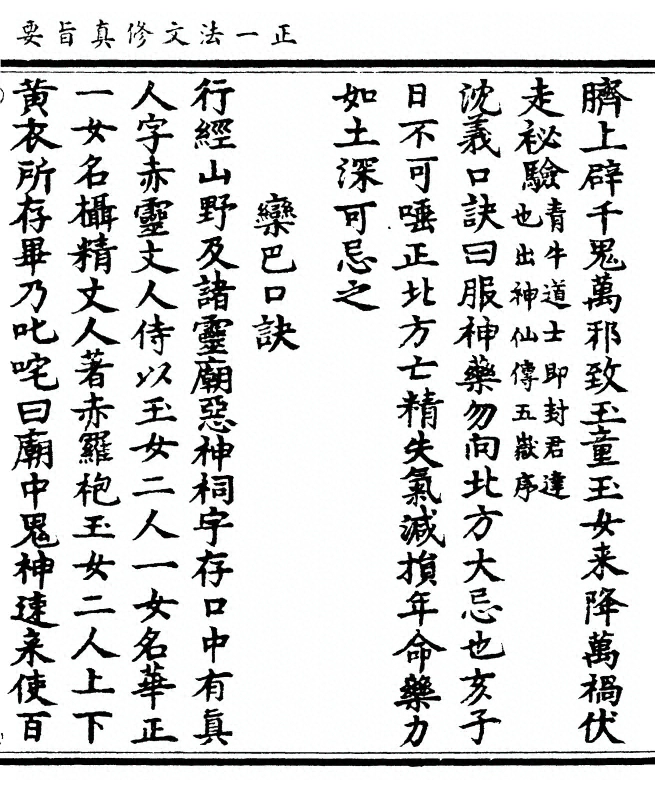 正一法文修真旨要
臍上辟千鬼萬邪致玉童玉女来降萬禍伏
走祕驗青牛道士即封君達也出神仙傳五嶽序
沈義口訣曰服神藥勿向北方大忌也亥子
日不可唾正北方亡精失氣減損年命藥力
如土深可忌之
欒巴口訣
行經山野及諸靈廟惡神祠宇存口中有真
人字赤靈丈人侍以玉女二人一女名華正
一女名攝精丈人著赤羅袍玉女二人上下
黄衣所存畢乃叱咤曰廟中鬼神速来使百